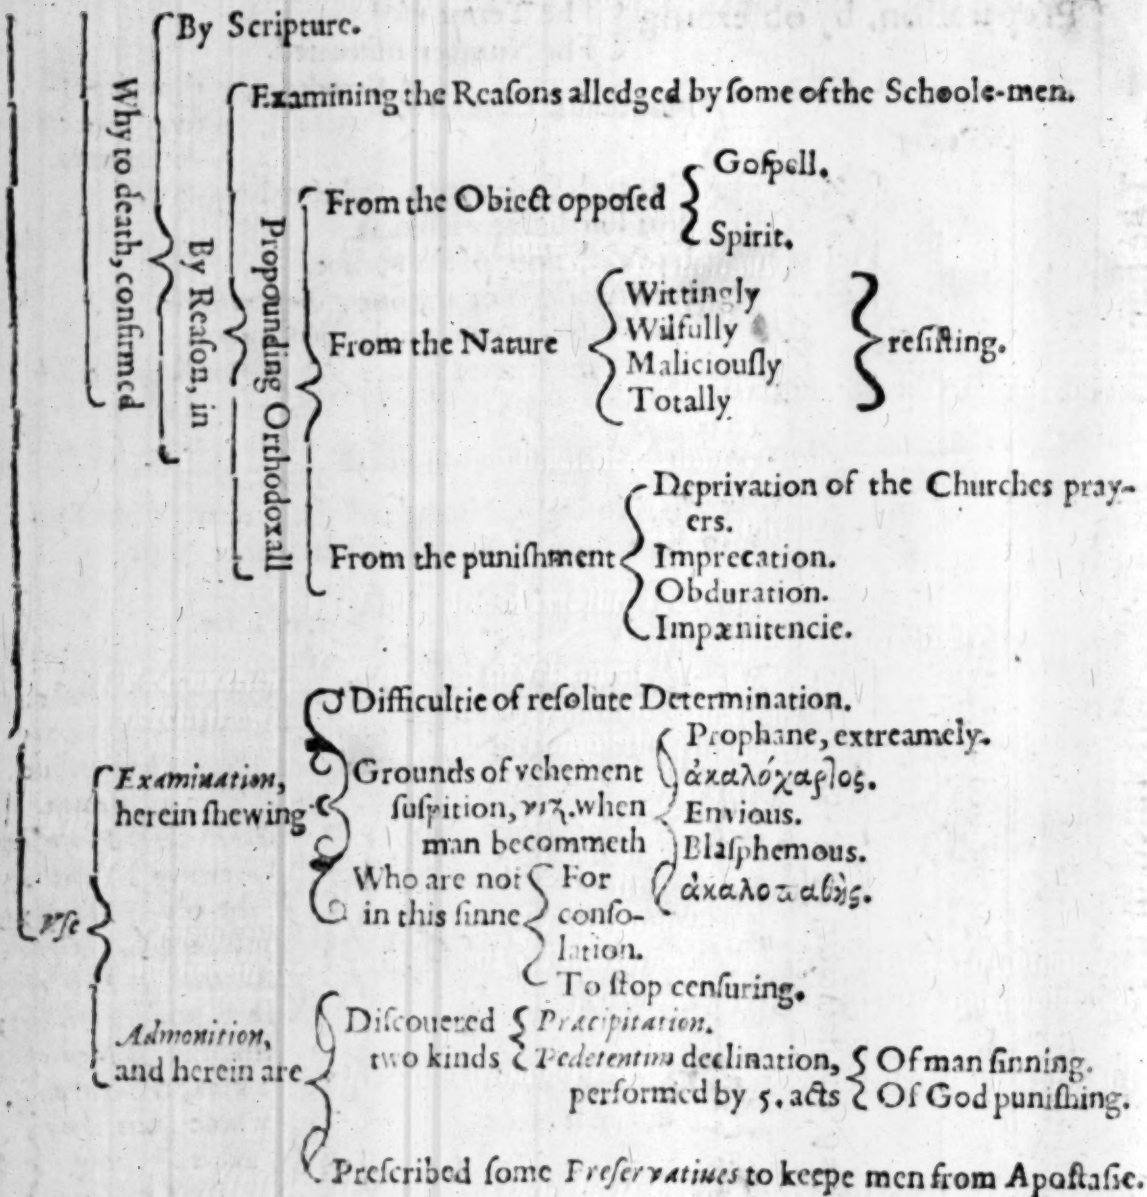 By Scripture.
Why to death, confirmed
By Reaſon, in
Examining the Reaſons alledged by ſome of the Schoole-men.
Propounding Orthodoxall
From the Obiect oppoſed
Goſpell.
Spirit.
From the Nature
Wittingly
Wilfully
Maliciouſly
Totally
reſiſting.
From the puniſhment
Deprivation of the Churches pray-
ers.
Imprecation.
Obduration.
Impænitencie.
Vſe
Examination,
herein ſhewing
Difficultie of reſolute Determination.
Grounds of vehement
ſuſpition, viz. when
man becommeth
Prophane, extreamely.
ἀκαλόχαρῖος.
Envious.
Blaſphemous.
ἀκαλοπαθὴς.
Who are not
in this ſinne
For
conſo-
lation.
To ſtop cenſuring.
Admonition,
and herein are
Diſcouered
two kinds
Præcipitation.
Pedetentim declination,
performed by 5. acts
Of man ſinning.
Of God puniſhing.
Preſcribed ſome Preſervatiues to keepe men from Apoſtaſie